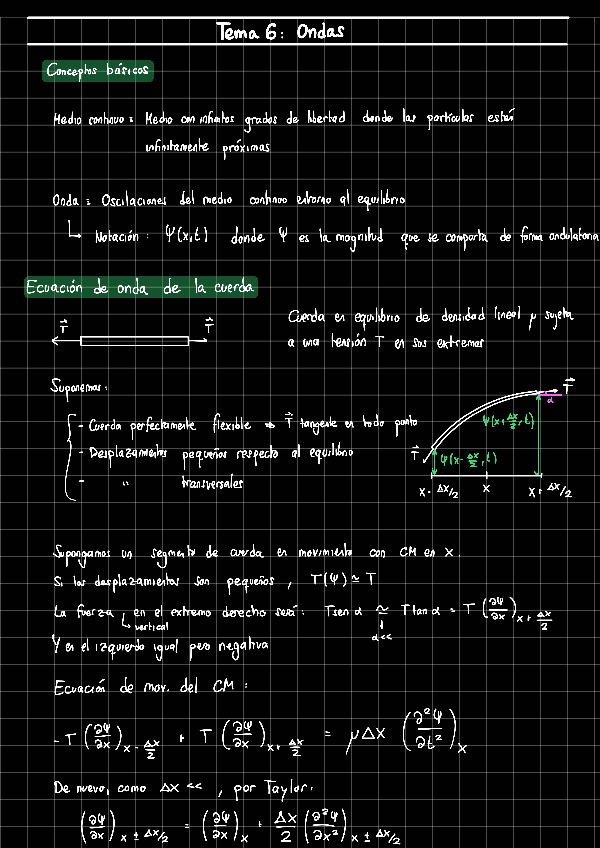 Tema 6: Ondas
Conceptos básicos
Medio continuo = Medio con infinitos grados de libertad donde las partículas están
infinitamente próximas
Onda = Oscilaciones del medio continuo entorno al equilibrio
↳ Notación: Ψ(x,t) donde Ψ es la magnitud que se comporta de forma ondulatoria
Ecuación de onda de la cuerda
T⃗ T⃗
Cuerda en equilibrio de densidad lineal μ sujeta
a una tensión T en sus extremos
Suponemos:
- Cuerda perfectamente flexible ⇒ T⃗ tangente en todo punto
- Desplazamientos pequeños respecto al equilibrio
- " transversales
T⃗ α
Ψ(x+Δx/2,t)
T⃗ Ψ(x-Δx/2,t)
x-Δx/2 x x+Δx/2
Supongamos un segmento de cuerda en movimiento con CM en x.
Si los desplazamientos son pequeños, T(Ψ) ≃ T
La fuerza en el extremo derecho será: T sen α ≃ T tan α = T (∂Ψ/∂x)_{x+Δx/2}
↳ vertical α<<
Y en el izquierdo igual pero negativa
Ecuación de mov. del CM:
-T (∂Ψ/∂x)_{x-Δx/2} + T (∂Ψ/∂x)_{x+Δx/2} = μΔx (∂²Ψ/∂t²)_x
De nuevo, como Δx <<, por Taylor:
(∂Ψ/∂x)_{x±Δx/2} = (∂Ψ/∂x)_x + Δx/2 (∂²Ψ/∂x²)_{x±Δx/2}